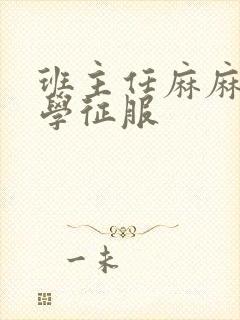 班主任麻麻
學征服
一未